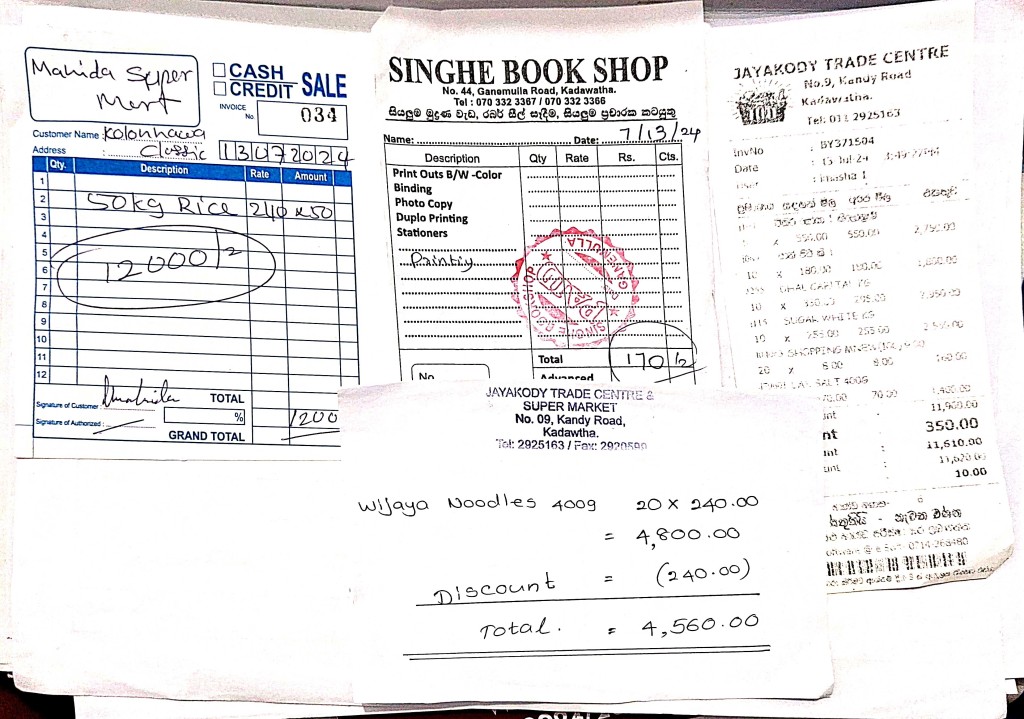 Mahida Super
Mart
CASH
CREDIT SALE
INVOICE
No. 034
Customer Name : Kolonnawa
Address : Classic 13 07 2024
Qty. Description Rate Amount
1
2 50kg Rice 240 x 50
3
4
5 12000/=
6
7
8
9
10
11
12
Signature of Customer : TOTAL
Signature of Authorized : % 1200
GRAND TOTAL
SINGHE BOOK SHOP
No. 44, Ganemulla Road, Kadawatha.
Tel : 070 332 3367 / 070 332 3366
සියලුම මුද්‍රණ වැඩ, රබර් සීල් සෑදීම, සියලුම ප්‍රචාරක කටයුතු
Name: Date: 7/13/24
Description Qty Rate Rs. Cts.
Print Outs B/W -Color
Binding
Photo Copy
Duplo Printing
Stationers
Printing
Total 170/=
No Advanced
JAYAKODY TRADE CENTRE
No.9, Kandy Road
Kadawatha.
Tel: 011 2925163
InvNo : BY371504
Date : 13 Jul 24
x 550.00 2,750.00
10 x 180.00 180.00 1,800.00
DHAL
10 x 295.00 2,950.00
SUGAR WHITE KG
10 x 255.00 255.00
SHOPPING
20 x 8.00 8.00 160.00
SALT 400G
70.00 70.00 1,400.00
nt : 11,960.00
nt 350.00
unt : 11,610.00
11,620.00
unt : 10.00
JAYAKODY TRADE CENTRE &
SUPER MARKET
No. 09, Kandy Road,
Kadawtha.
Tel: 2925163 / Fax: 2920590
Wijaya Noodles 400g 20 x 240.00
= 4,800.00
Discount = (240.00)
Total. = 4,560.00